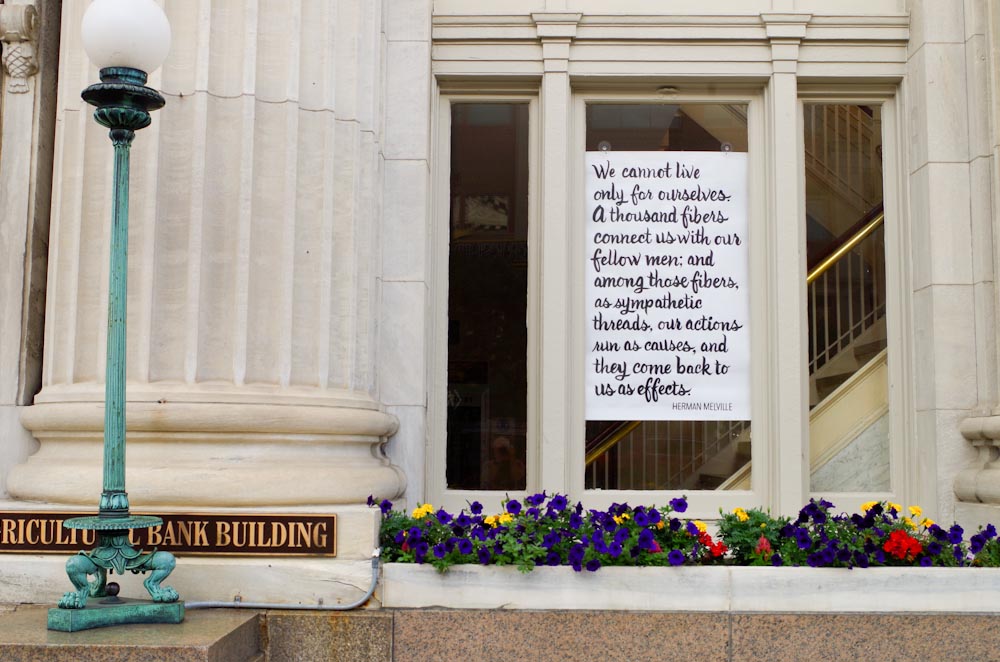 We cannot live
only for ourselves.
A thousand fibers
connect us with our
fellow men; and
among those fibers,
as sympathetic
threads, our actions
run as causes, and
they come back to
us as effects.
HERMAN MELVILLE
BANK BUILDING